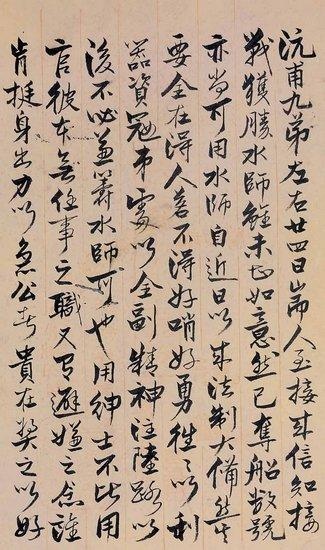 沅甫九弟左右廿四日耑人至接來信知接
戰獲勝水師雖未甚如意然已奪船數號
亦尚可用水師自近日以來法制大備然其
要全在得人若不得好哨好勇往々以利
器資寇弟處以全副精神注陸路以
後不必兼籌水師可也用紳士不比用
官彼本無任事之職又有避嫌之念誰
肯挺身出力以急公者貴在獎之以好